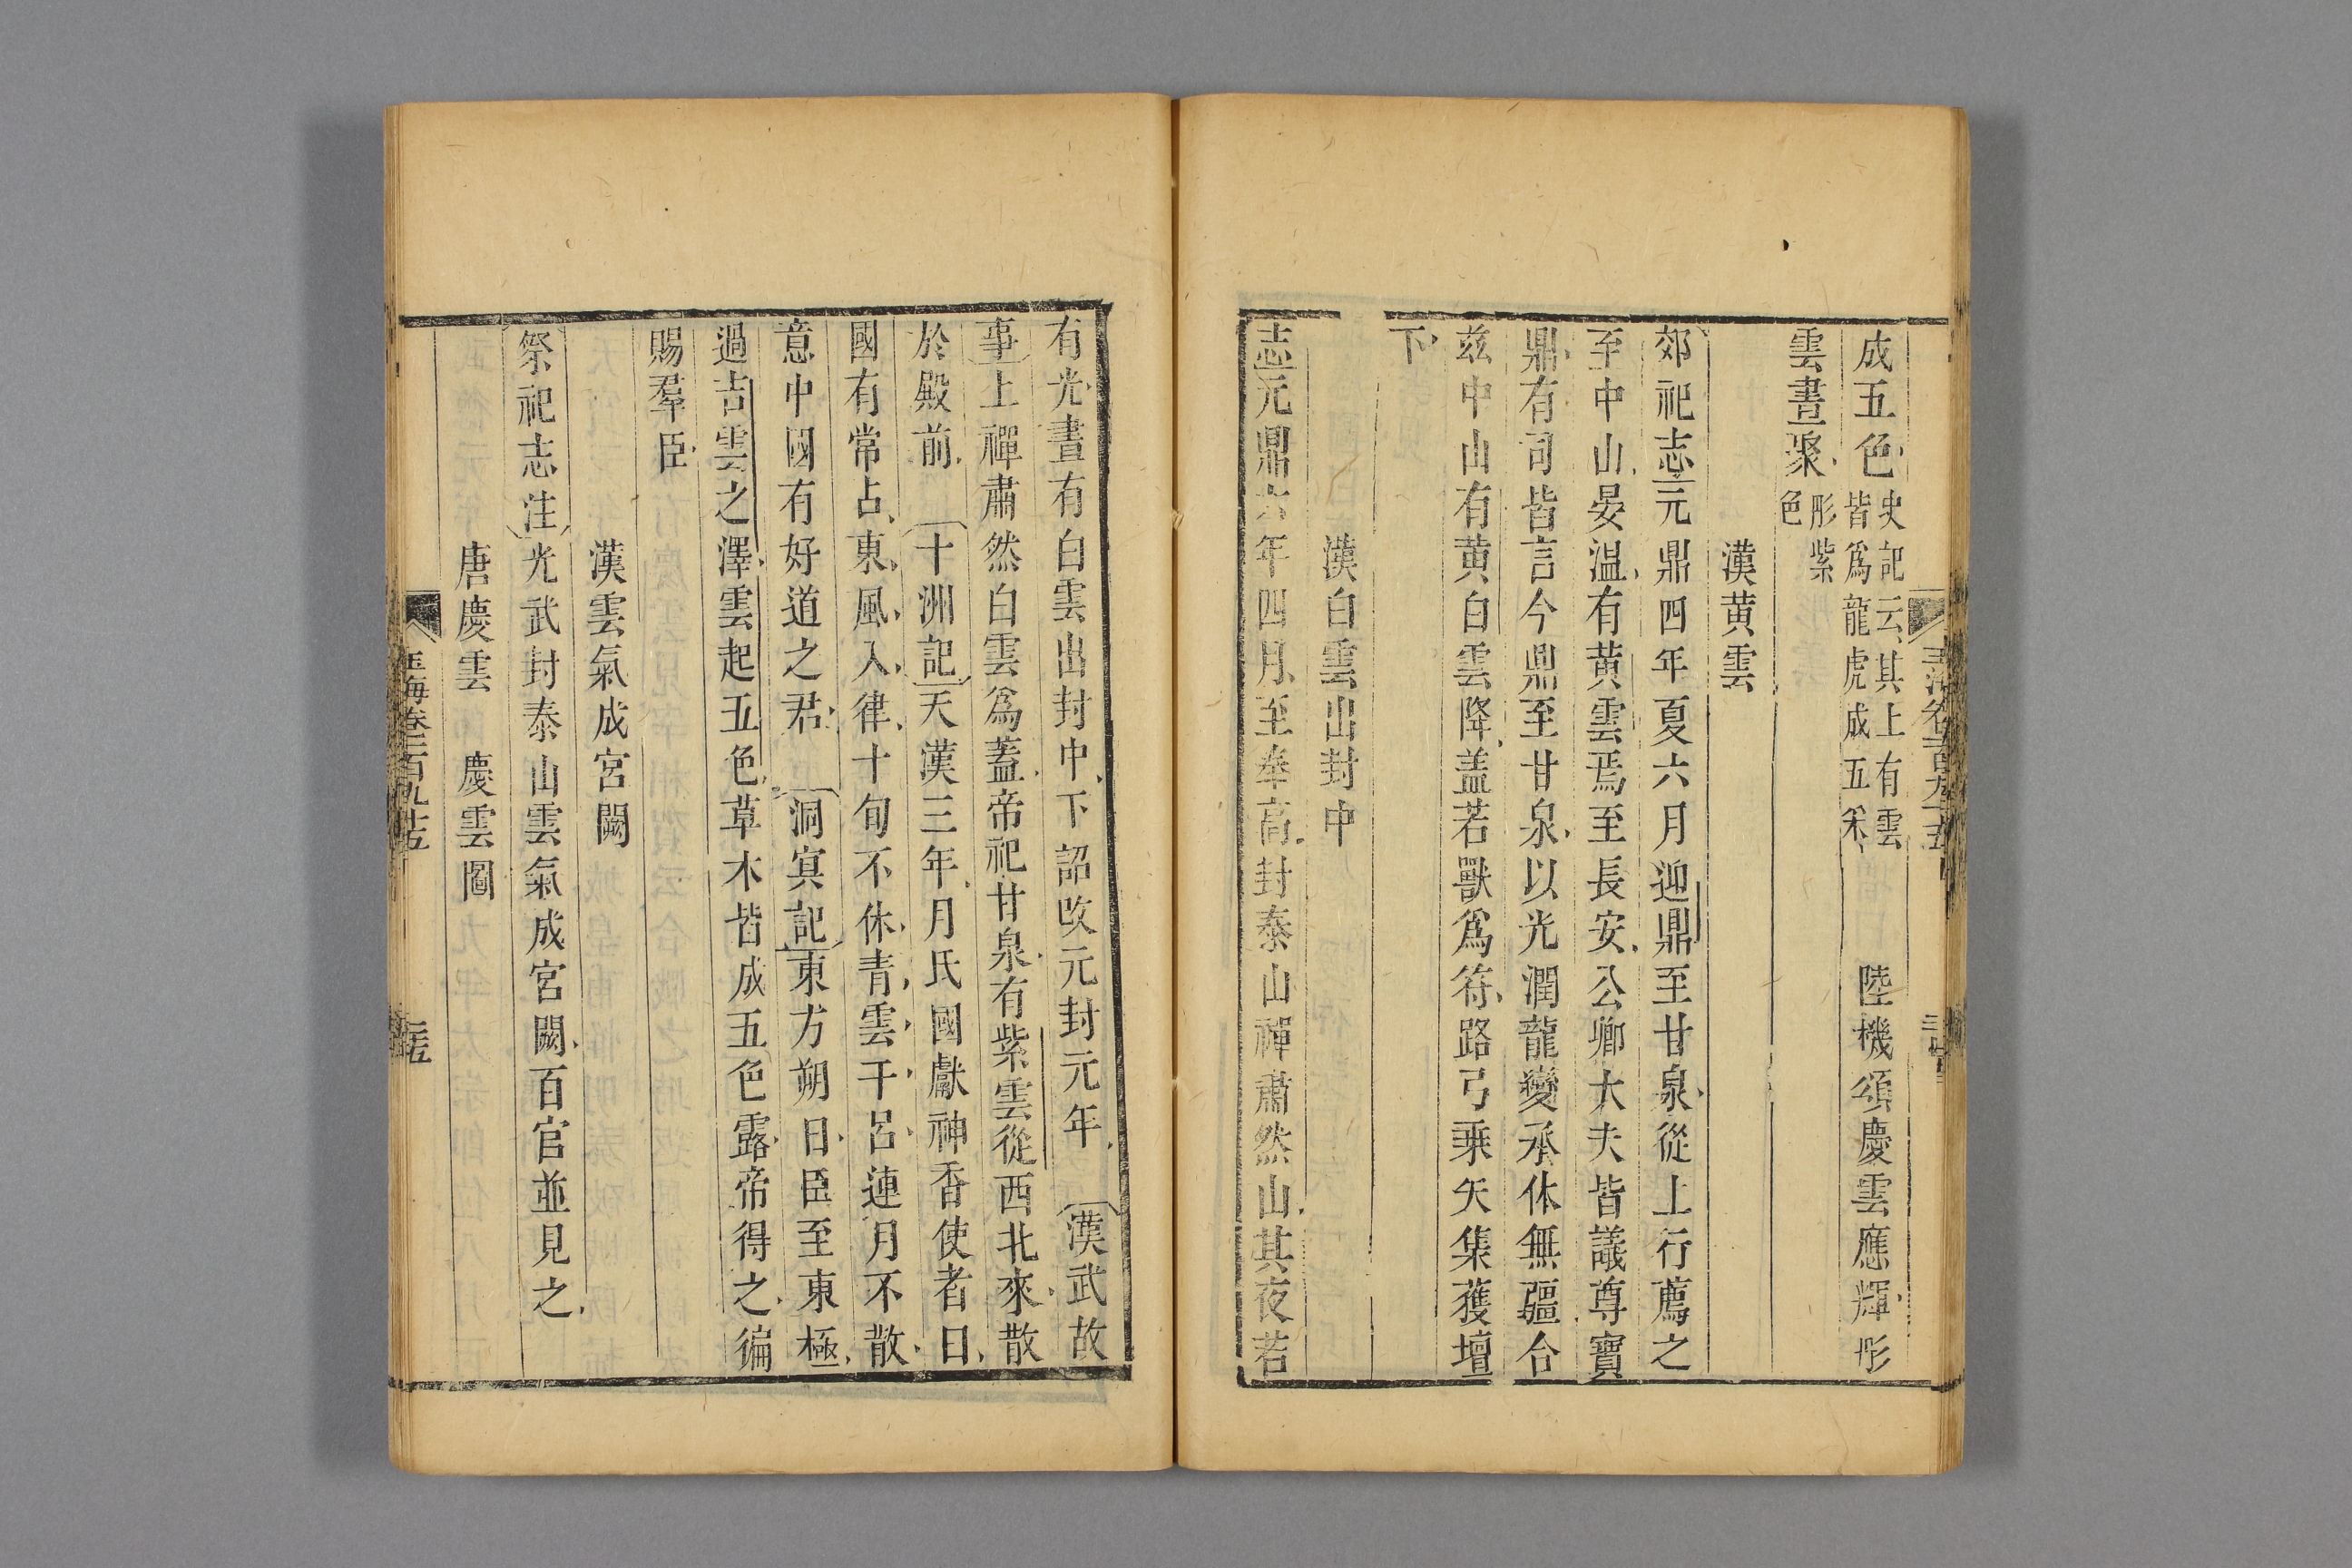 成五色史記云其上有雲皆爲龍虎成五采 陸機頌慶雲應輝彤
雲晝聚彤紫色
漢黄雲
郊祀志元鼎四年夏六月迎鼎至甘泉從上行薦之
至中山晏温有黄雲焉至長安公卿大夫皆議尊寶
鼎有司皆言今鼎至甘泉以光潤龍變承休無疆合
兹中山有黄白雲降盖若獸爲符路弓乘矢集獲壇
下
漢白雲出封中
志元鼎六年四月至奉高封泰山禪肅然山其夜若
有光晝有白雲出封中下詔改元封元年 漢武故
事上禪肅然白雲爲蓋帝祀甘泉有紫雲從西北來散
於殿前 十洲記天漢三年月氏國獻神香使者曰
國有常占東風入律十旬不休青雲干呂連月不散
意中國有好道之君 洞冥記東方朔曰臣至東極
過吉雲之澤雲起五色草木皆成五色露帝得之徧
賜羣臣
漢雲氣成宮闕
祭祀志注光武封泰山雲氣成宮闕百官並見之
唐慶雲 慶雲圖
玉海卷一百九十五 二十五